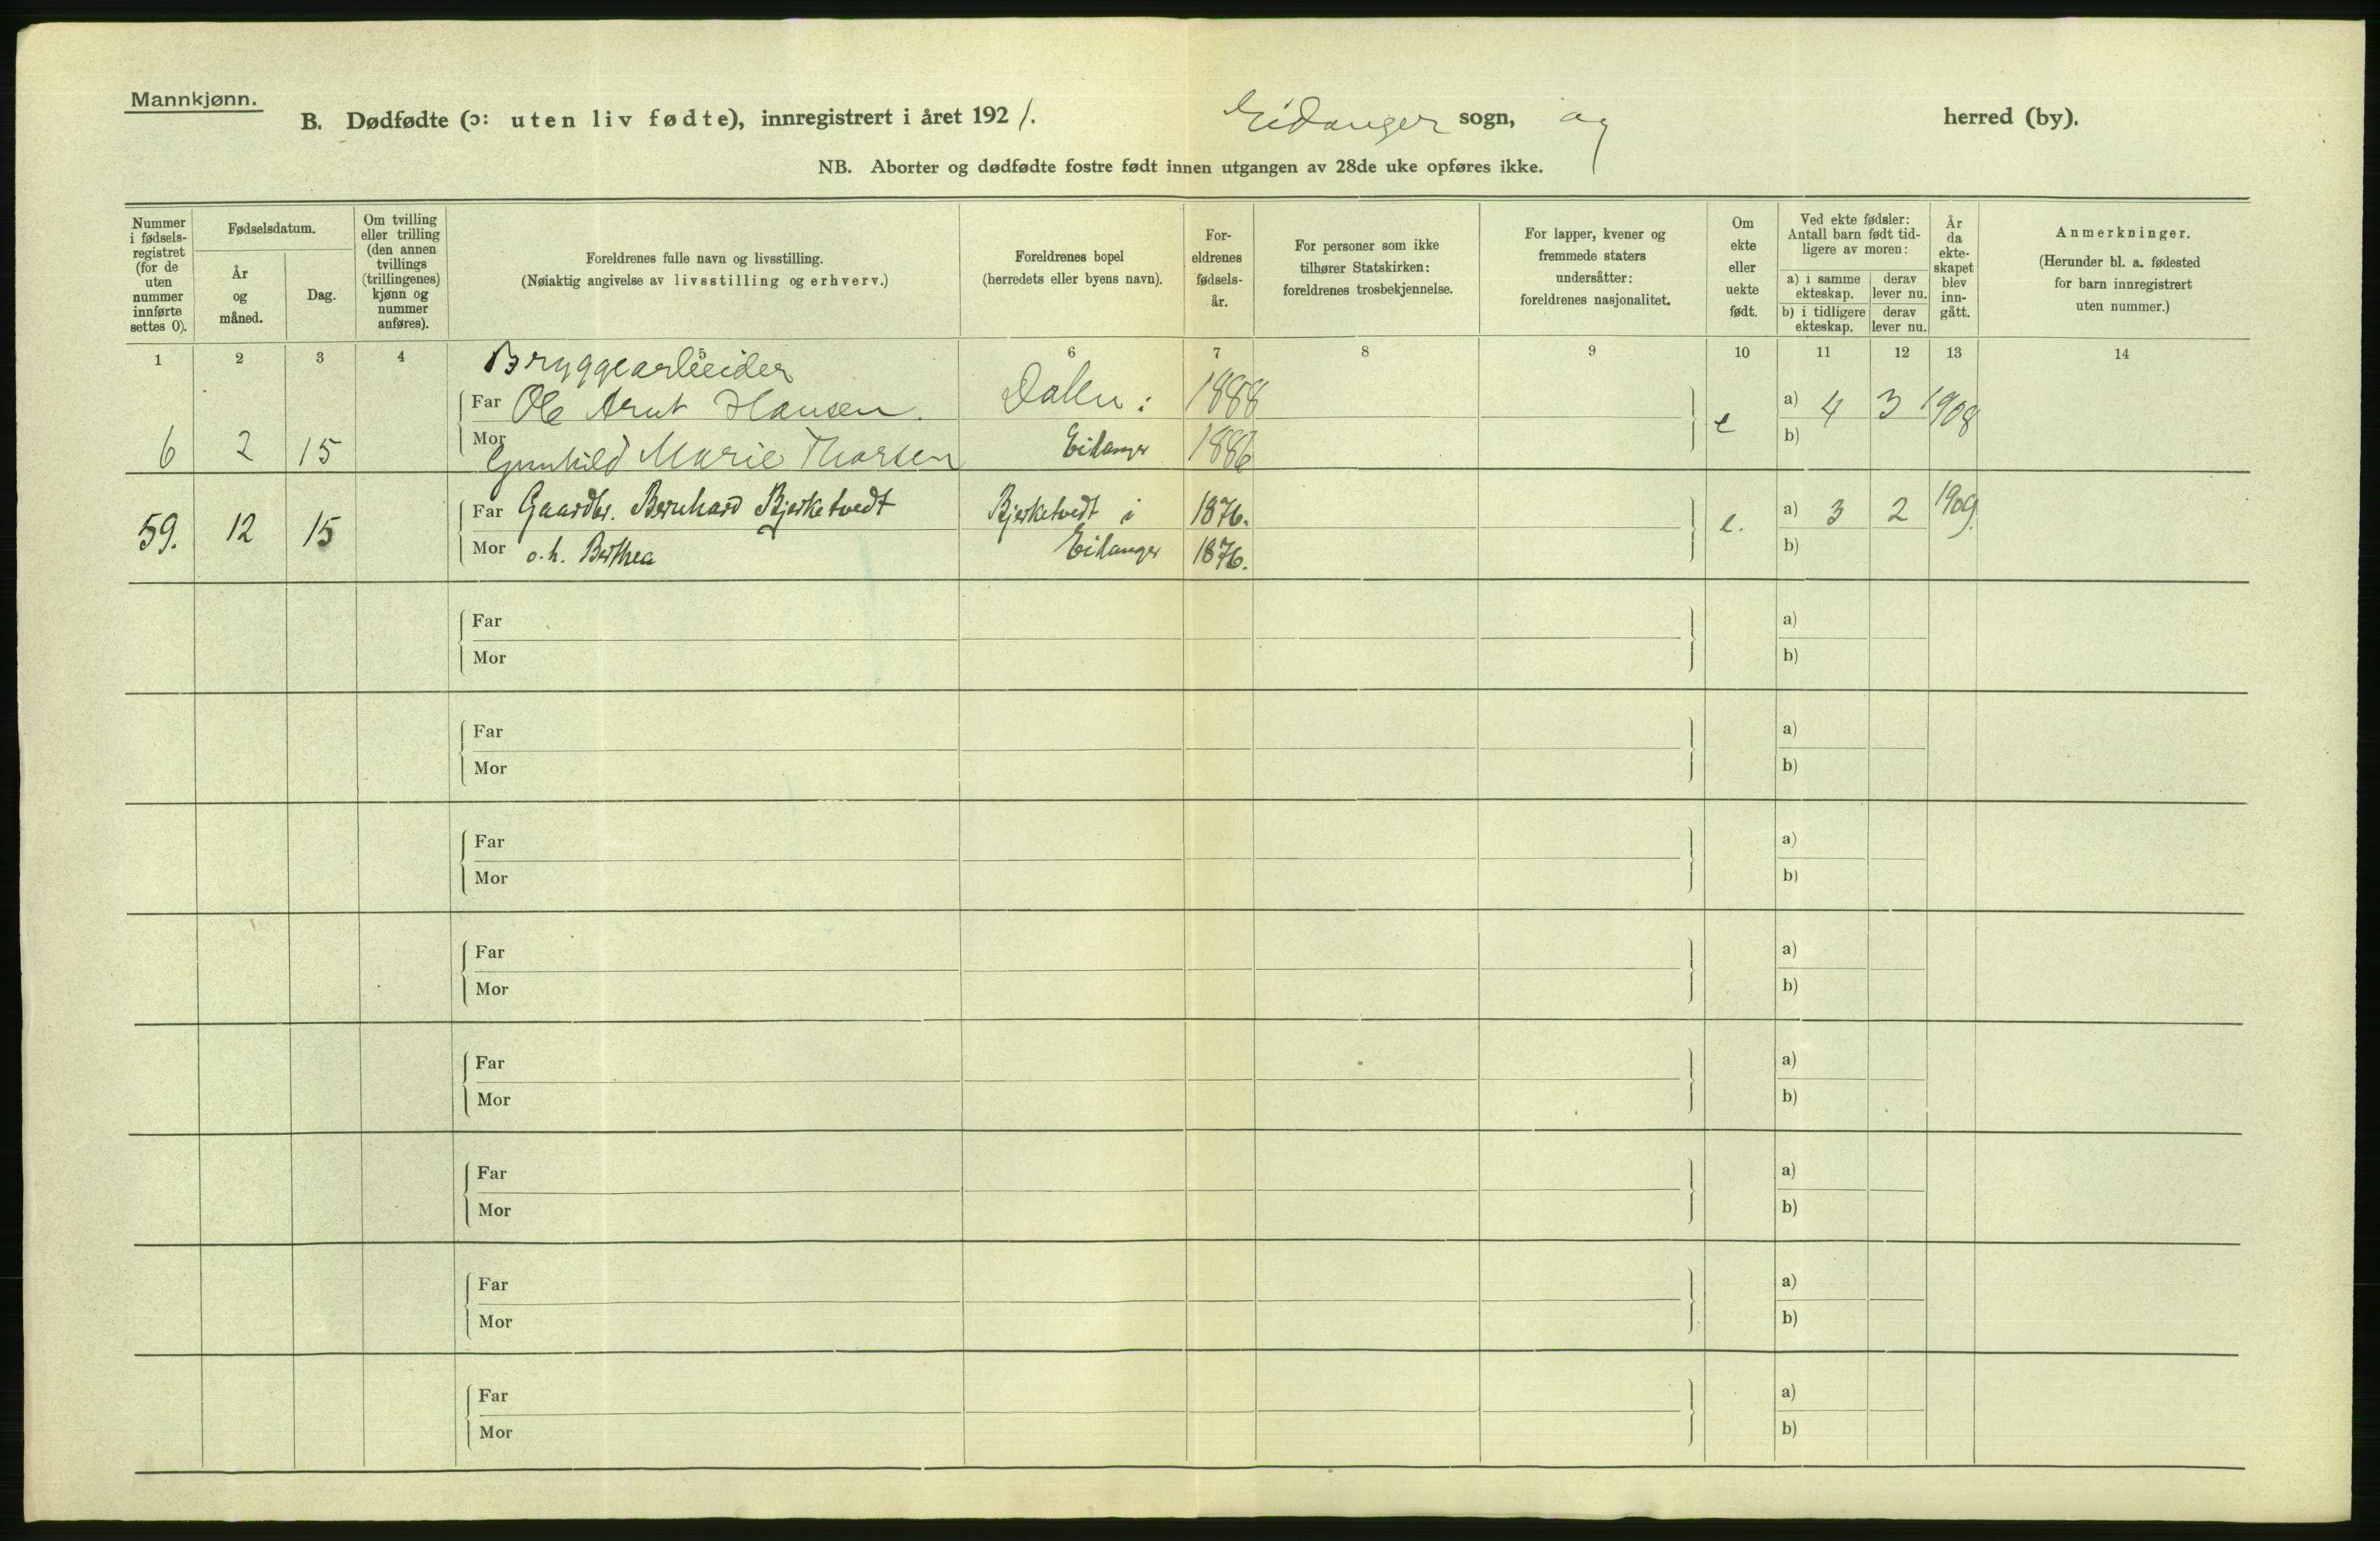 Mannkjønn.
B. Dødfødte (ɔ: uten liv fødte), innregistrert i året 1921. Eidanger sogn, og herred (by).
NB. Aborter og dødfødte fostre født innen utgangen av 28de uke opføres ikke.
Nummer i fødsels-registret (for de uten nummer innførte settes 0).
Fødselsdatum.
År og måned.
Dag.
Om tvilling eller trilling (den annen tvillings (trillingenes) kjønn og nummer anføres).
Foreldrenes fulle navn og livsstilling.
(Nøiaktig angivelse av livsstilling og erhverv.)
Foreldrenes bopel
(herredets eller byens navn).
For-eldrenes fødsels-år.
For personer som ikke tilhører Statskirken: foreldrenes trosbekjennelse.
For lapper, kvener og fremmede staters undersåtter: foreldrenes nasjonalitet.
Om ekte eller uekte født.
Ved ekte fødsler: Antall barn født tid-ligere av moren:
a) i samme ekteskap. derav lever nu.
b) i tidligere ekteskap. derav lever nu.
År da ekte-skapet blev inn-gått.
Anmerkninger.
(Herunder bl. a. fødested for barn innregistrert uten nummer.)
1 2 3 4 5 6 7 8 9 10 11 12 13 14
Bryggearbeider
Far Ole Arnt Hansen. Dalen i 1888 a) 4 3 1908
6 2 15 Mor Gunhild Marie Thorsen Eidanger 1886 e b)
Far Gaardbr. Bernhard Bjerketvedt Bjerketvedt i 1876. a) 3 2 1909.
59. 12 15 Mor o.h. Berthea Eidanger 1876. e. b)
Far a)
Mor b)
Far a)
Mor b)
Far a)
Mor b)
Far a)
Mor b)
Far a)
Mor b)
Far a)
Mor b)
Far a)
Mor b)
Far a)
Mor b)